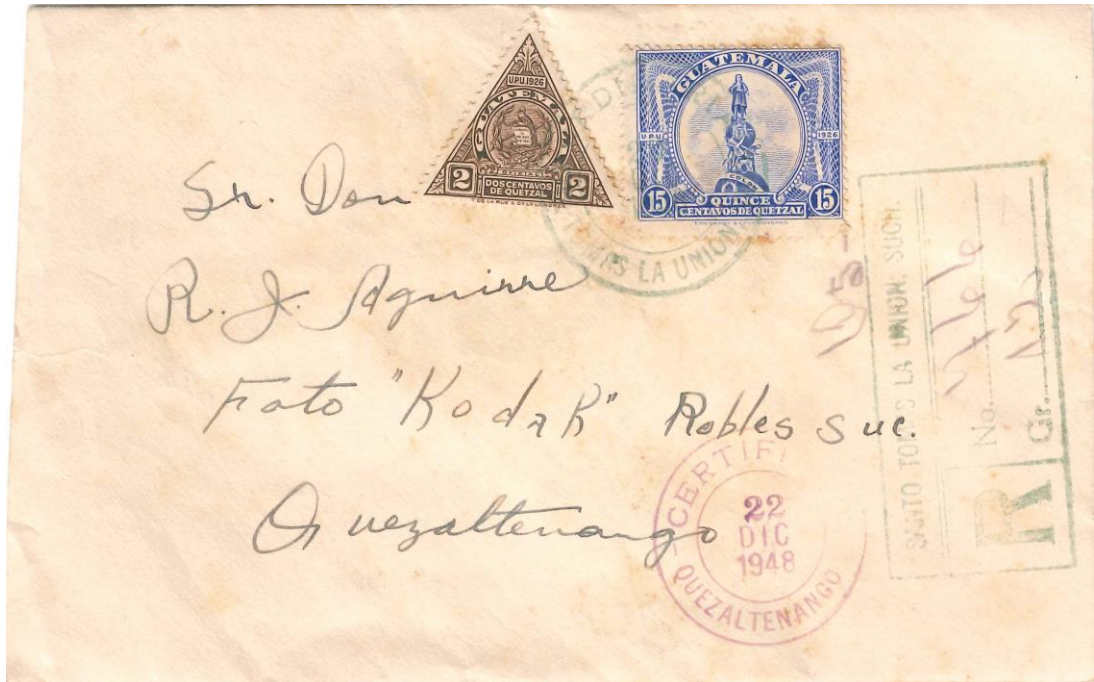 U.P.U. 1926
GUATEMALA
2 2
DOS CENTAVOS
DE QUETZAL
GUATEMALA
U.P.U. 1926
COLON
15 QUINCE 15
CENTAVOS DE QUETZAL
DE
LA UNION
Sr. Don
R. J. Aguirre
Foto "Kodak" Robles Suc.
Quezaltenango
CERTIFI
22
DIC
1948
QUEZALTENANGO
SANTO TOMAS LA UNION, SUCH.
R
No.
Gr.